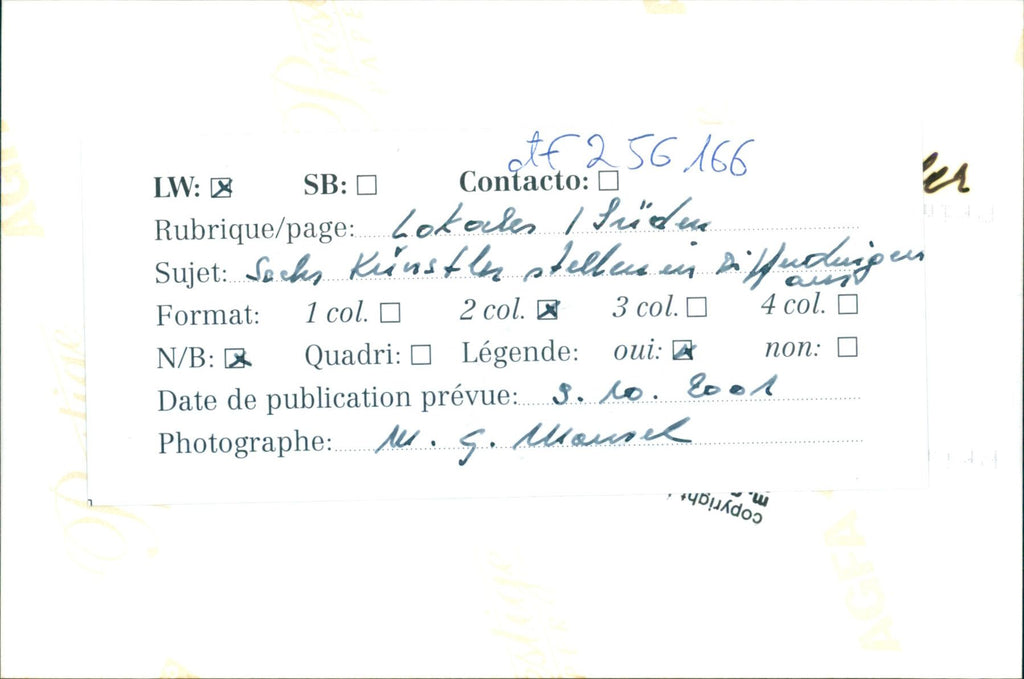 dtF 256 166
LW: ☒ SB: ☐ Contacto: ☐
Rubrique/page: Lokales / Süden
Sujet: Sechs Künstler stellen in Differdingen
aus
Format: 1 col. ☐ 2 col. ☒ 3 col. ☐ 4 col. ☐
N/B: ☒ Quadri: ☐ Légende: oui: ☒ non: ☐
Date de publication prévue: 9. 10. 2001
Photographe: M. G. Mansel
copyright
AGFA
Prestige